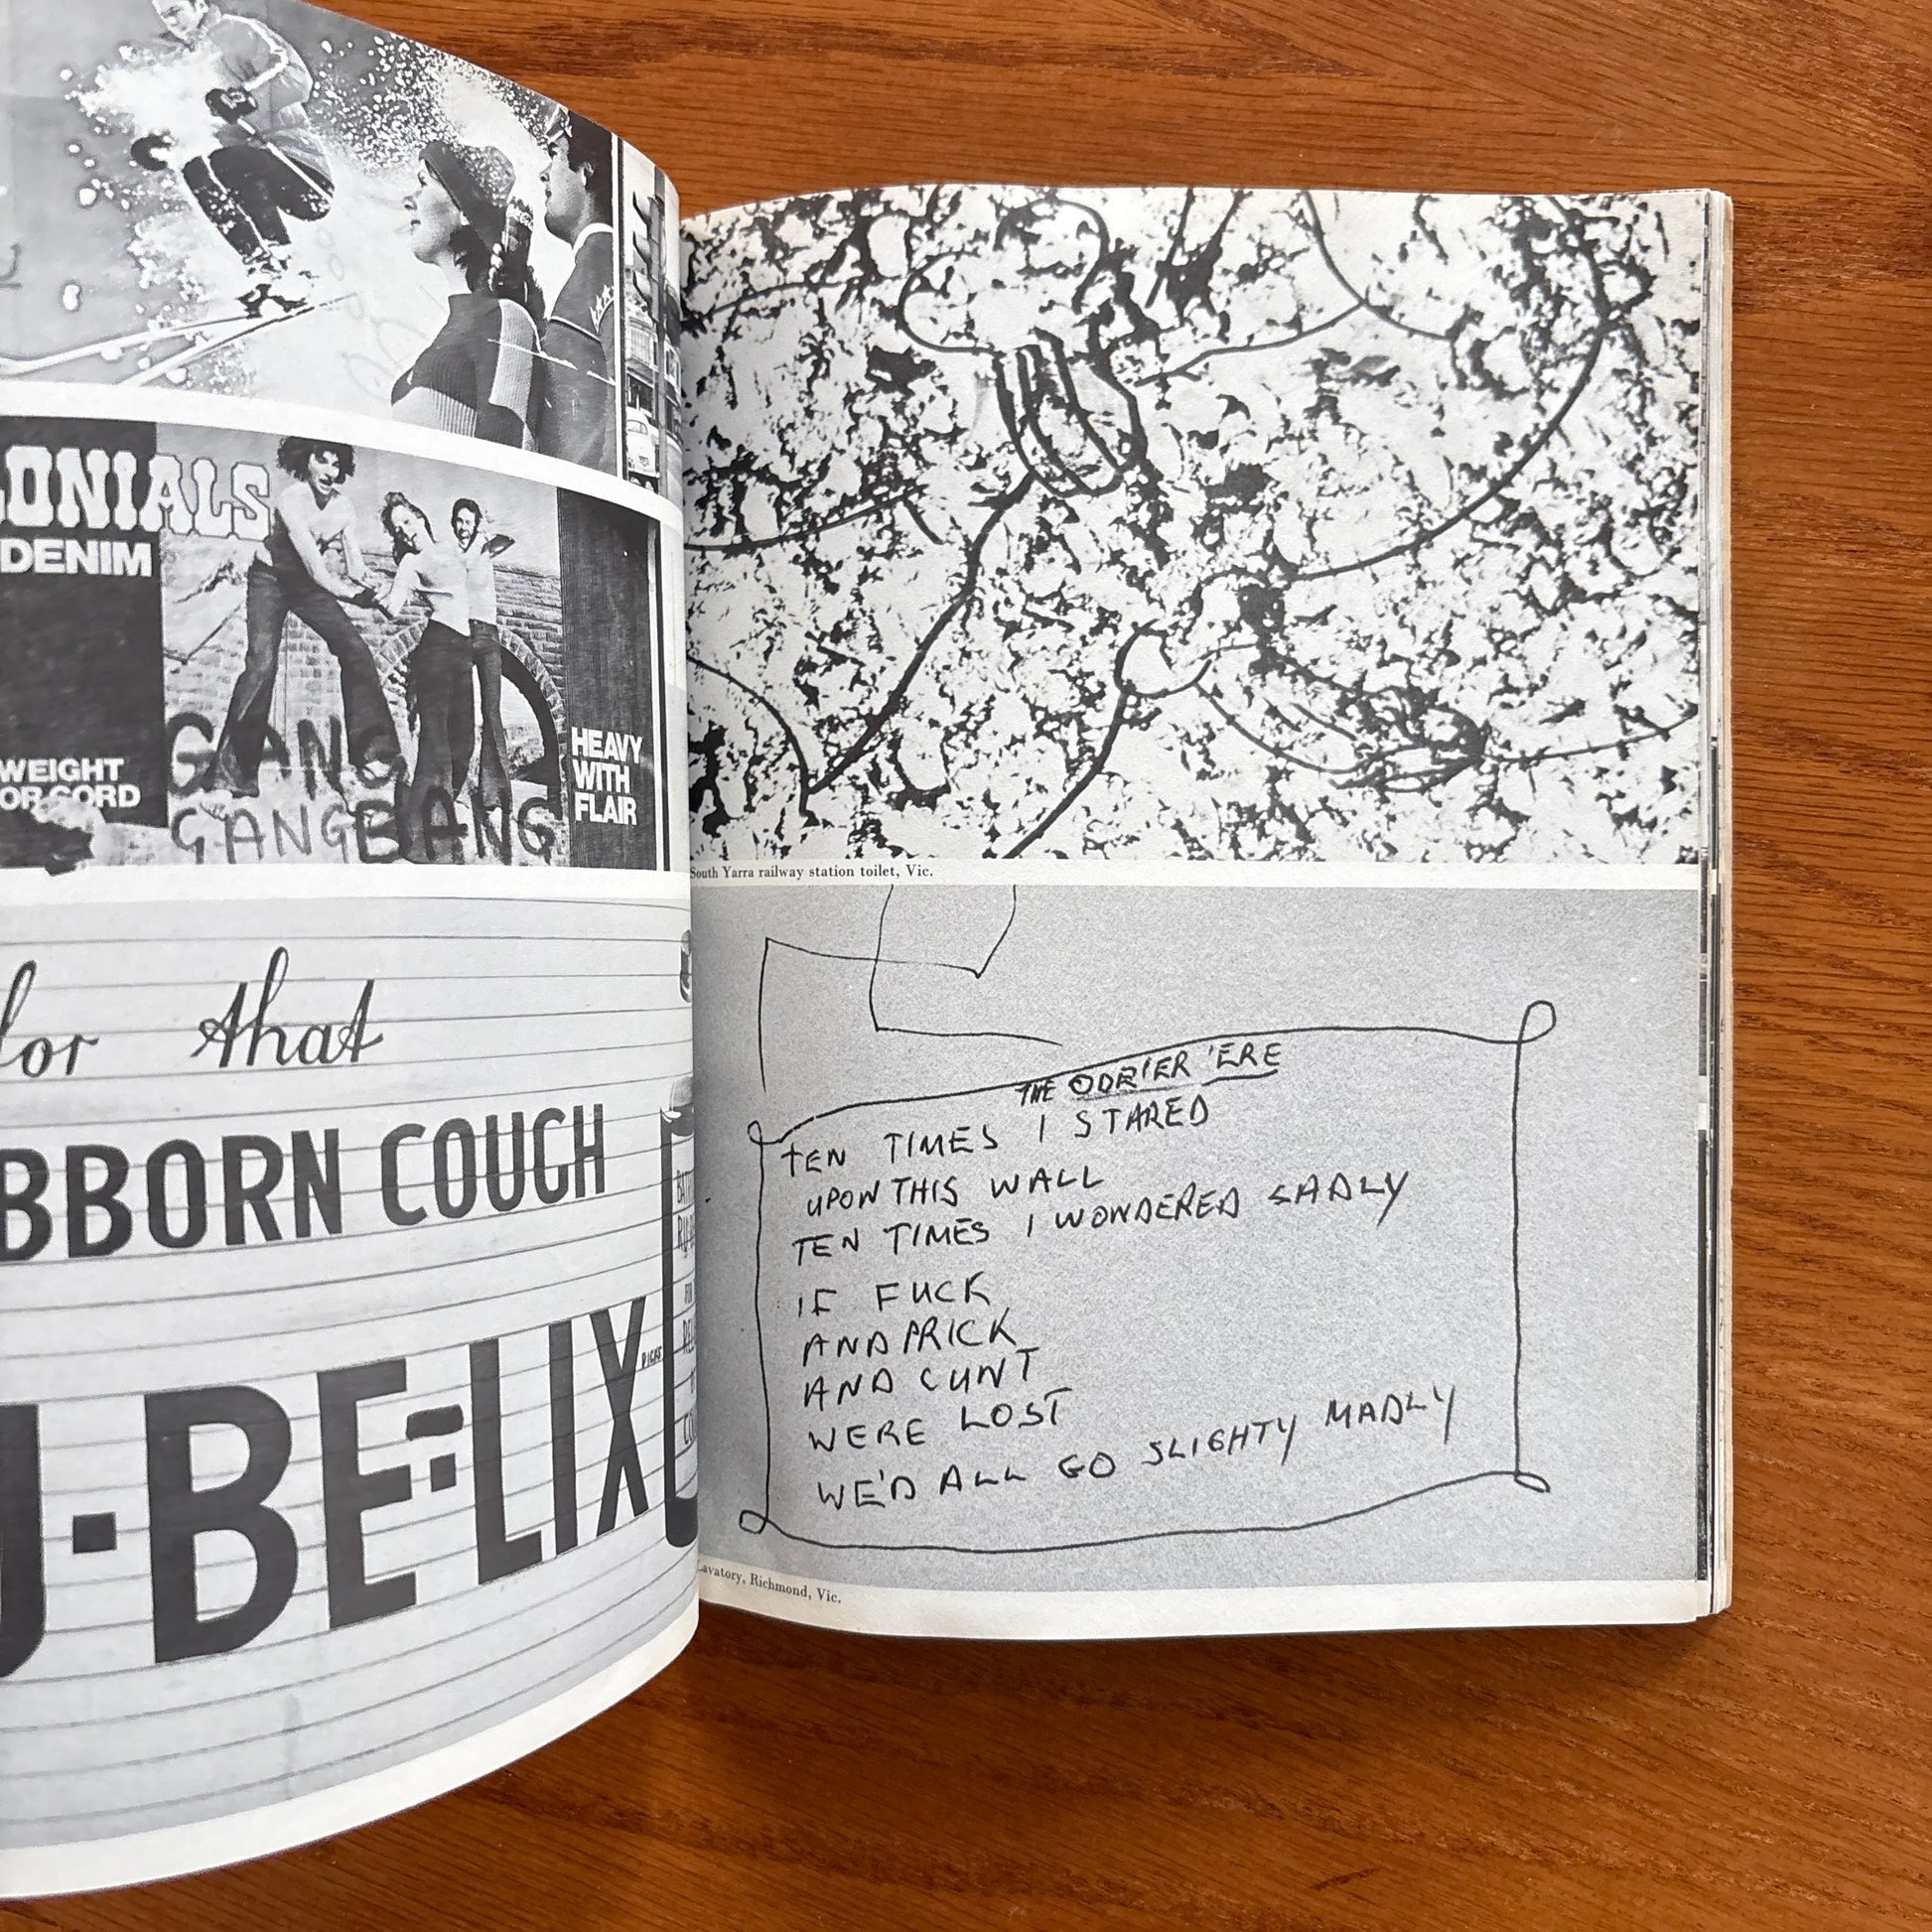 ONIALS
DENIM
WEIGHT
OR CORD
GANG
GANGBANG
HEAVY
WITH
FLAIR
for that
BBORN COUGH
U·BE-LIX
South Yarra railway station toilet, Vic.
THE ODR'ER 'ERE
TEN TIMES I STARED
UPON THIS WALL
TEN TIMES I WONDERED SADLY
IF FUCK
AND PRICK
AND CUNT
WERE LOST
WE'D ALL GO SLIGHTY MADLY
Lavatory, Richmond, Vic.